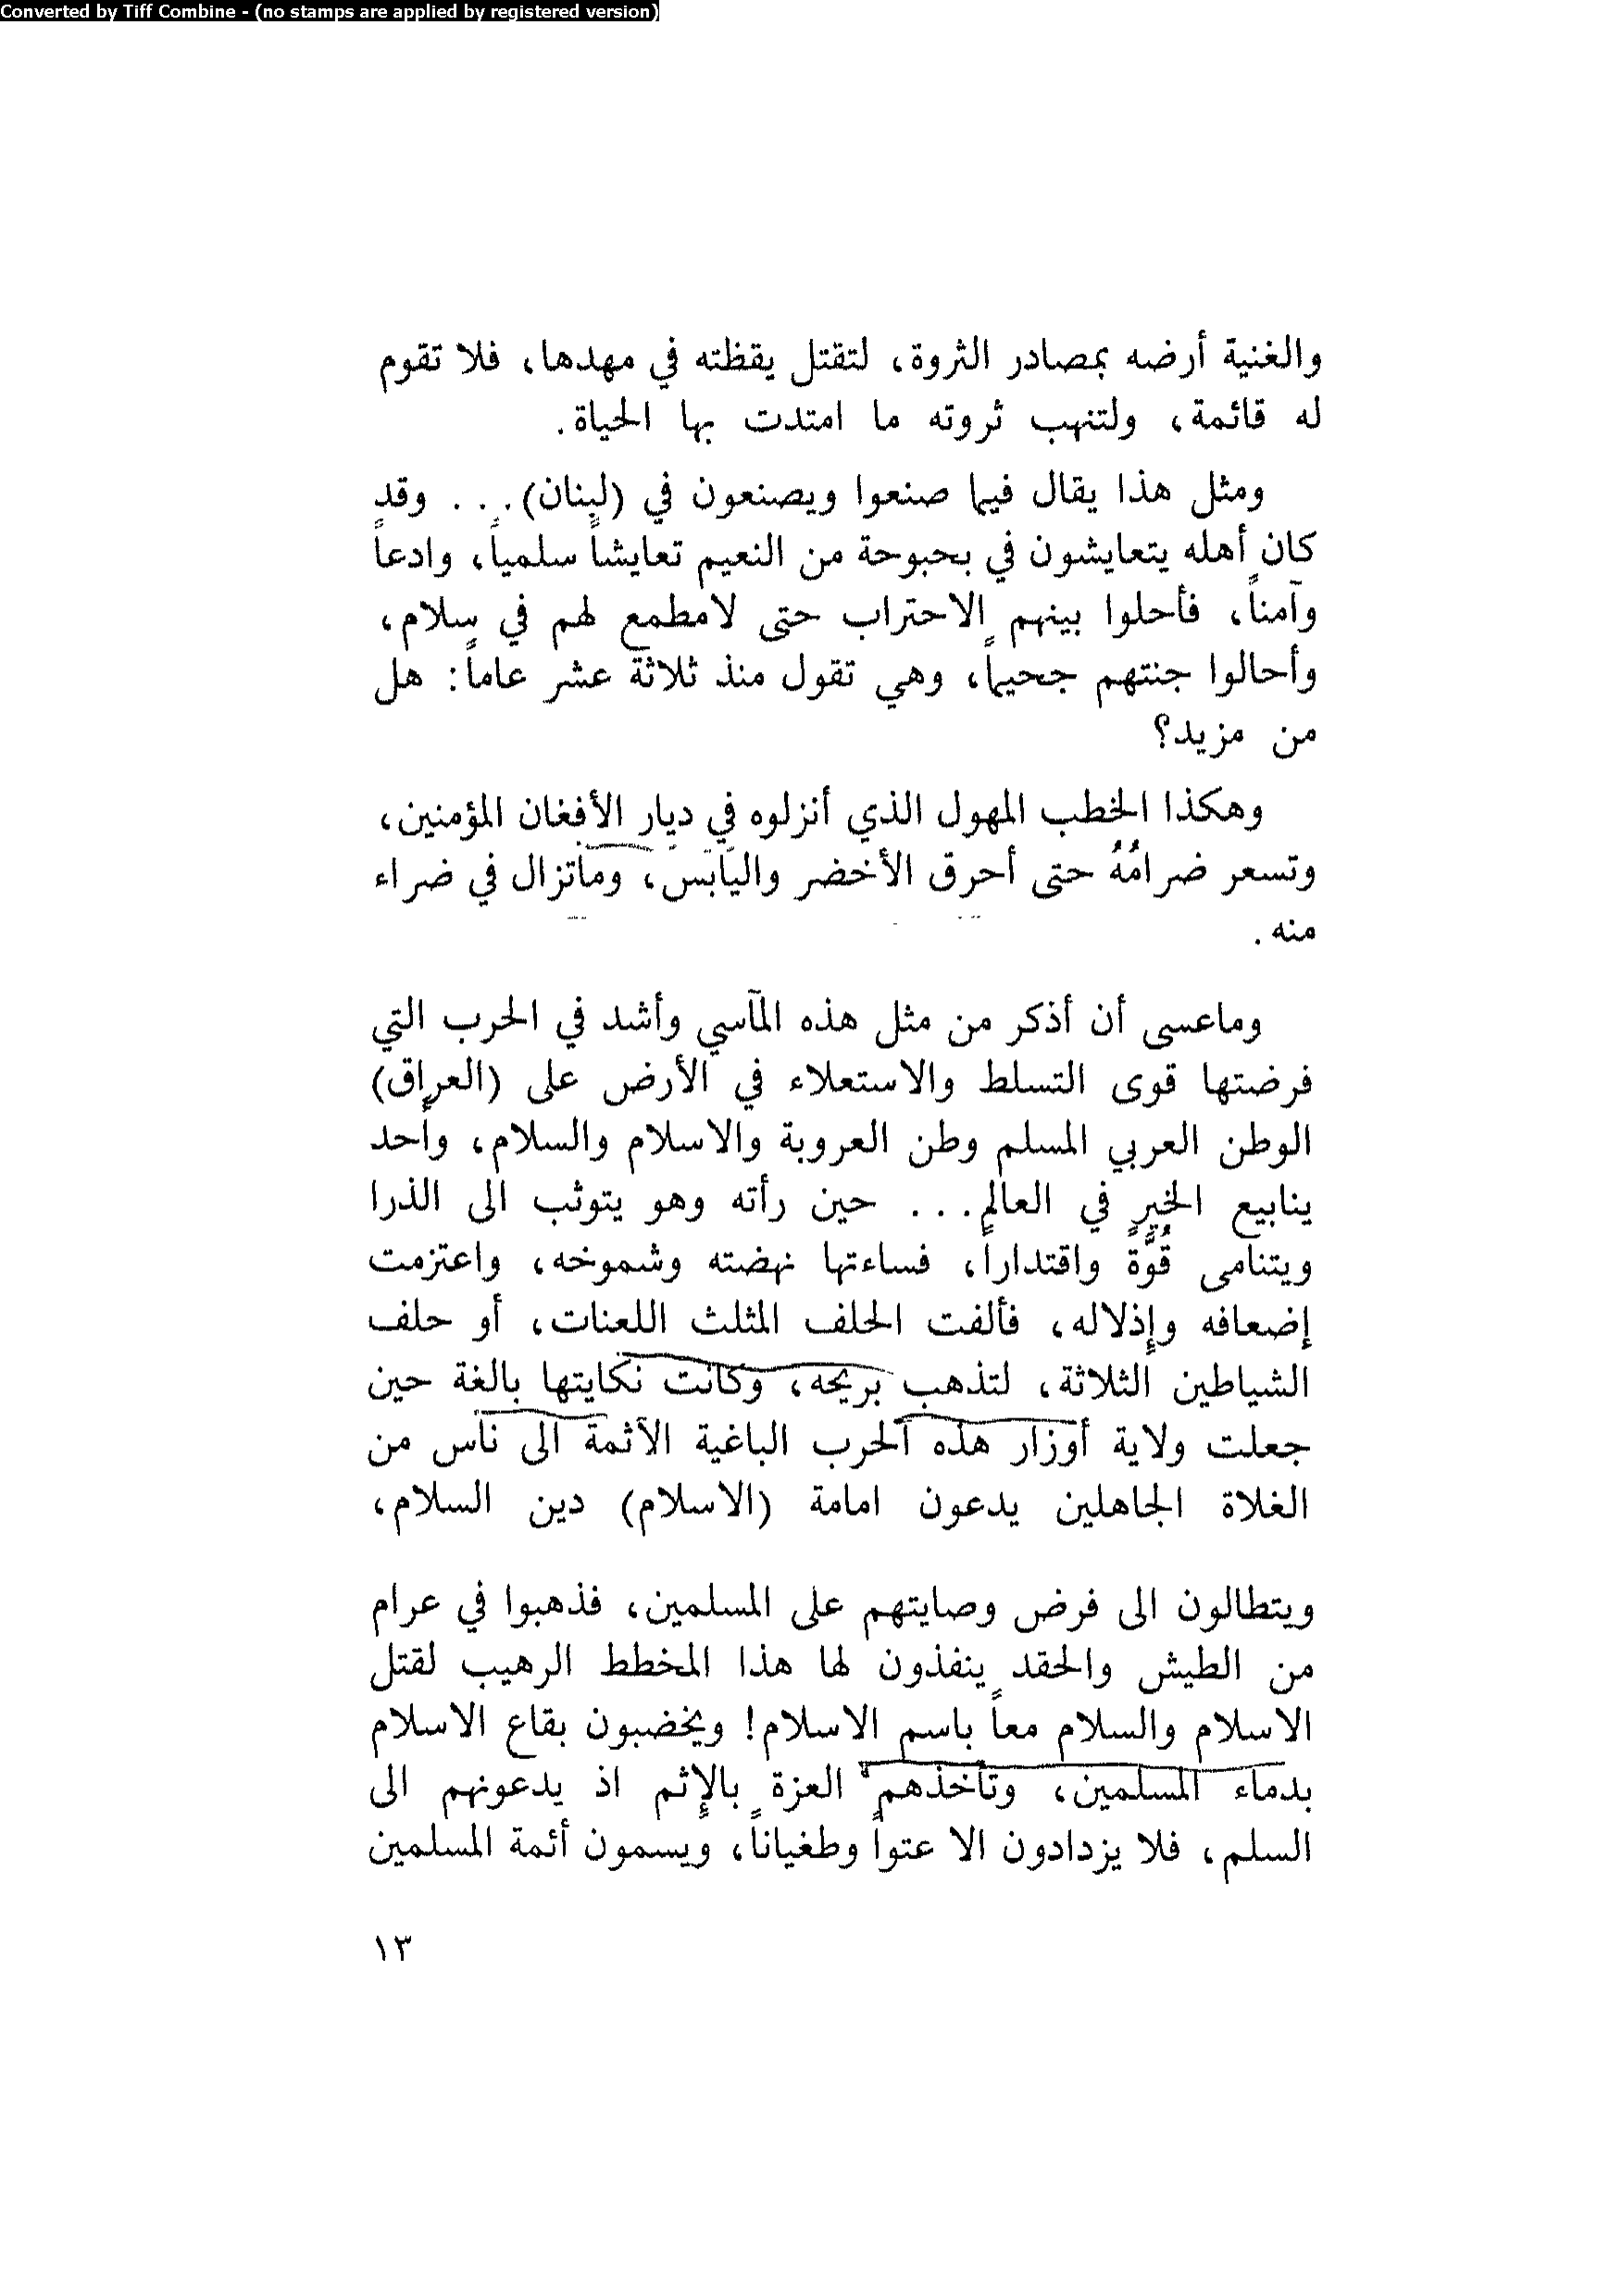 Converted by Tiff Combine - (no stamps are applied by registered version)
والغنية أرضه بمصادر الثروة، لتقتل يقظته في مهدها، فلا تقوم
له قائمة، ولتنهب ثروته ما امتدت بها الحياة.
ومثل هذا يقال فيما صنعوا ويصنعون في (لبنان)... وقد
كان أهله يتعايشون في بحبوحة من النعيم تعايشاً سلمياً، وادعاً
وآمناً، فأحلوا بينهم الاحتراب حتى لامطمع لهم في سلام،
وأحالوا جنتهم جحيماً، وهي تقول منذ ثلاثة عشر عاماً: هل
من مزيد؟
وهكذا الخطب المهول الذي أنزلوه في ديار الأفغان المؤمنين،
وتسعر ضرامُهُ حتى أحرق الأخضر واليابس، وماتزال في ضراء
منه.
وماعسى أن أذكر من مثل هذه المآسي وأشد في الحرب التي
فرضتها قوى التسلط والاستعلاء في الأرض على (العراق)
الوطن العربي المسلم وطن العروبة والاسلام والسلام، وأحد
ينابيع الخير في العالم... حين رأته وهو يتوثب الى الذرا
ويتنامى قُوَّةً واقتداراً، فساءتها نهضته وشموخه، واعتزمت
إضعافه وإذلاله، فألفت الحلف المثلث اللعنات، أو حلف
الشياطين الثلاثة، لتذهب بريحه، وكانت نكايتها بالغة حين
جعلت ولاية أوزار هذه الحرب الباغية الآثمة الى ناس من
الغلاة الجاهلين يدعون امامة (الاسلام) دين السلام،
ويتطالون الى فرض وصايتهم على المسلمين، فذهبوا في عرام
من الطيش والحقد ينفذون لها هذا المخطط الرهيب لقتل
الاسلام والسلام معاً باسم الاسلام! ويخضبون بقاع الاسلام
بدماء المسلمين، وتأخذهم العزة بالإثم اذ يدعونهم الى
السلم، فلا يزدادون الا عتواً وطغياناً، ويسمون أئمة المسلمين
١٣